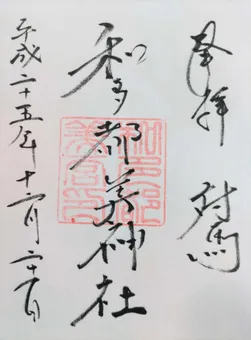 奉拝 対馬
和多都美神社
平成二十五年十一月二十一日